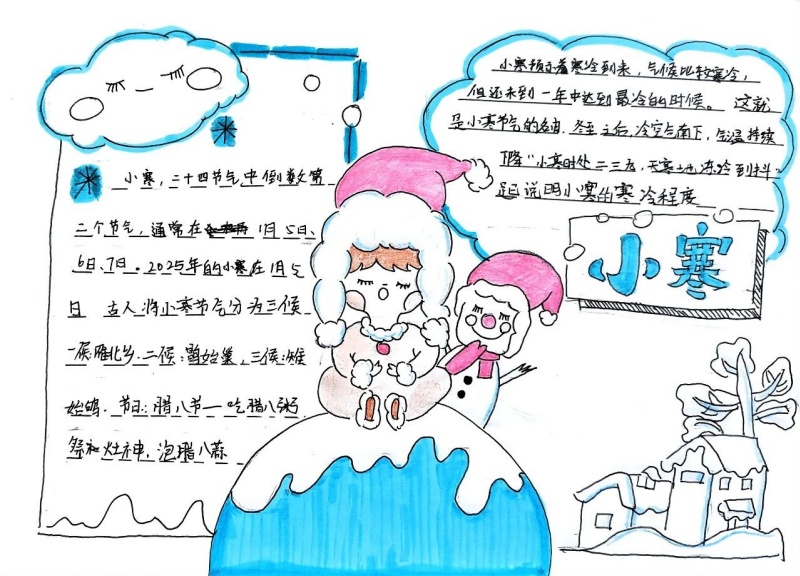 小寒，二十四节气中倒数第
二个节气，通常在 1月5日、
6日、7日。2025年的小寒在1月5
日 古人将小寒节气分为三候
一候雁北乡，二候：鹊始巢，三候：雉
始鸲，节日：腊八节一吃腊八粥
祭和灶神，泡腊八蒜
小寒预示着寒冷到来，气候比较寒冷，
但还未到一年中达到最冷的时候。这就
是小寒节气的名由，冬至之后，冷空气南下，气温持续
下降“小寒时处二三九，天寒地冻冷到抖”
足说明小寒的寒冷程度
小寒